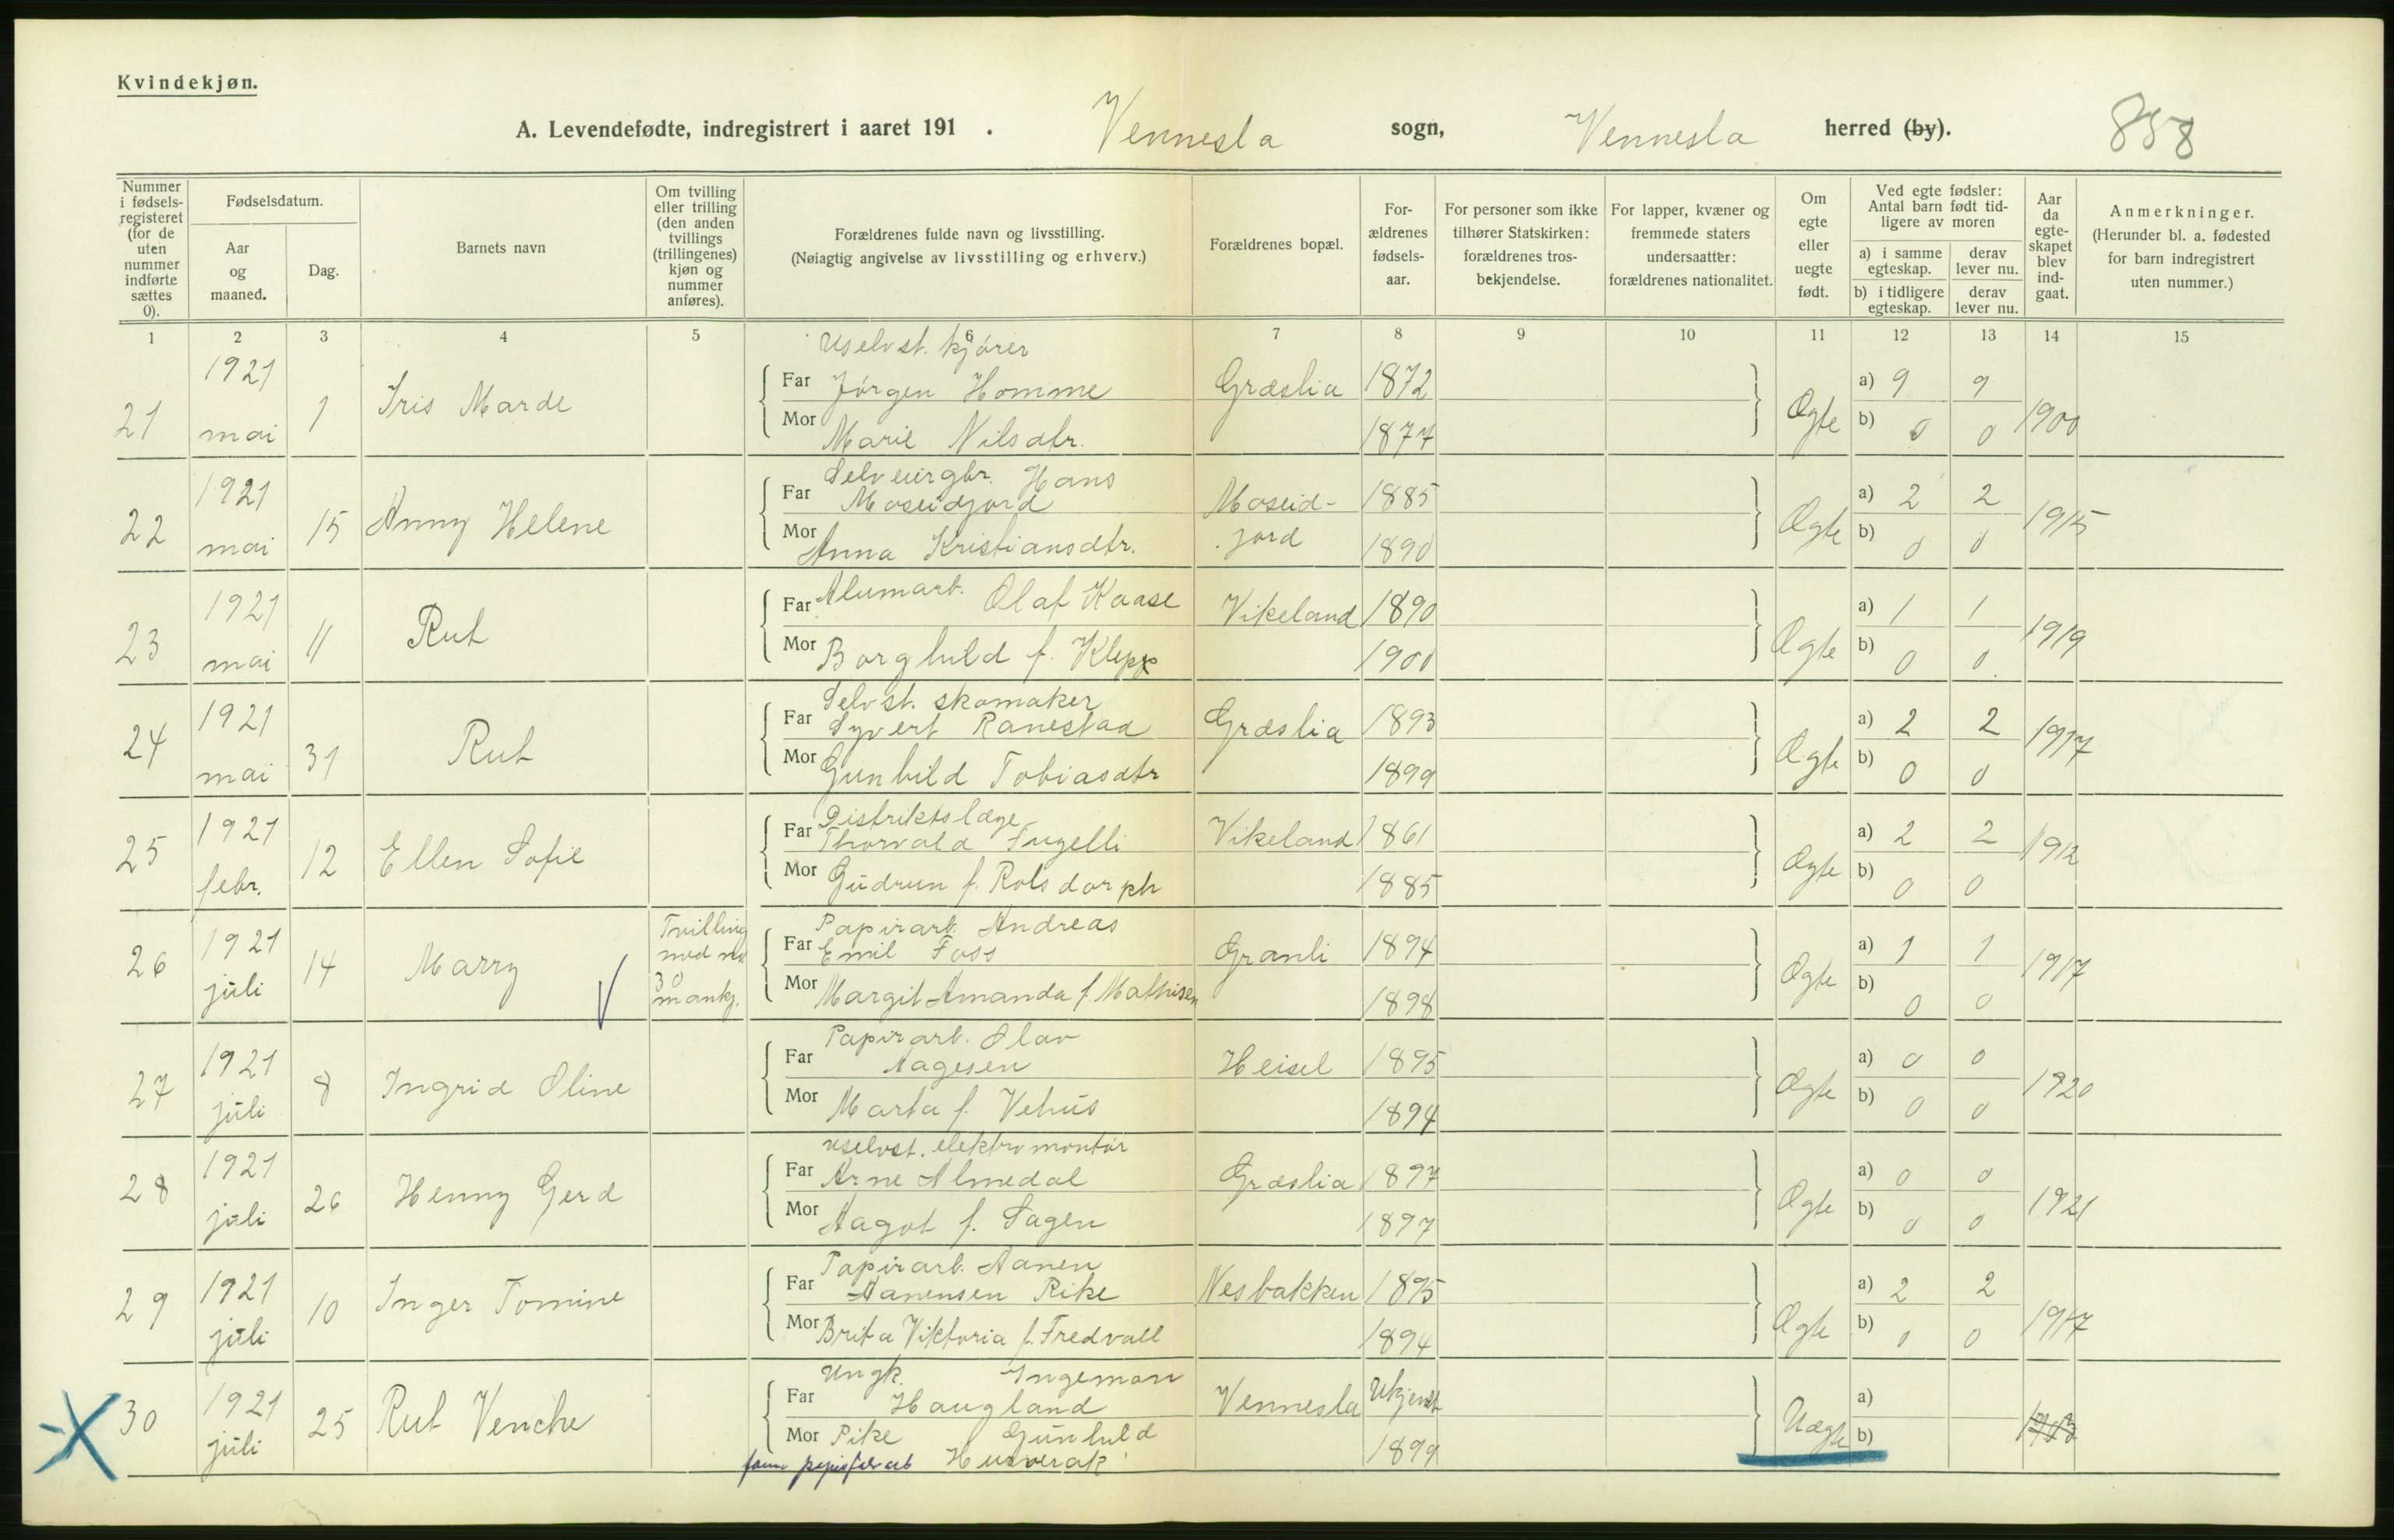 Kvindekjøn.
A. Levendefødte, indregistrert i aaret 191 . Vennesla sogn, Vennesla herred (by). 858
Nummer i fødsels-registeret (for de uten nummer indførte sættes 0).
Fødselsdatum.
Aar og maaned.
Dag.
Barnets navn
Om tvilling eller trilling (den anden tvillings (trillingenes) kjøn og nummer anføres).
Forældrenes fulde navn og livsstilling.
(Nøiagtig angivelse av livsstilling og erhverv.)
Forældrenes bopæl.
For-ældrenes fødsels-aar.
For personer som ikke tilhører Statskirken: forældrenes tros-bekjendelse.
For lapper, kvæner og fremmede staters undersaatter: forældrenes nationalitet.
Om egte eller uegte født.
Ved egte fødsler: Antal barn født tid-ligere av moren
a) i samme egteskap. derav lever nu.
b) i tidligere egteskap. derav lever nu.
Aar da egte-skapet blev ind-gaat.
Anmerkninger.
(Herunder bl. a. fødested for barn indregistrert uten nummer.)
1 2 3 4 5 6 7 8 9 10 11 12 13 14 15
Uselvst. kjører
21 1921 mai 1 Iris Marde Far Jörgen Homme Græslia 1872 Ægte a) 9 9 1900
Mor Marie Nilsdtr. 1877 b) 0 0
Selveiergbr. Hans
22 1921 mai 15 Anny Helene Far Moseidjord Moseid-jord 1885 Ægte a) 2 2 1915
Mor Anna Kristiansdtr. 1890 b) 0 0
23 1921 mai 11 Rut Far Alumarb. Olaf Kaase Vikeland 1890 Ægte a) 1 1 1919
Mor Borghild f. Klepp 1900 b) 0 0
Selvst. skomaker
24 1921 mai 31 Rut Far Syvert Ranestad Græslia 1893 Ægte a) 2 2 1917
Mor Gunhild Tobiasdtr 1899 b) 0 0
Distriktslæge
25 1921 febr. 12 Ellen Sofie Far Thorvald Fugelli Vikeland 1861 Ægte a) 2 2 1912
Mor Gudrun f. Rolsdorph 1885 b) 0 0
Papirarb. Andreas
26 1921 juli 14 Marry Tvilling med no 30 mankj. Far Emil Foss Granli 1894 Ægte a) 1 1 1917
Mor Margit Amanda f. Mathisen 1898 b) 0 0
Papirarb. Olav
27 1921 juli 8 Ingrid Oline Far Aagesen Heisel 1895 Ægte a) 0 0 1920
Mor Marta f. Vehus 1894 b) 0 0
Uselvst. elektromontör
28 1921 juli 26 Henny Gerd Far Arne Almedal Græslia 1897 Ægte a) 0 0 1921
Mor Aagot f. Sagen 1897 b) 0 0
Papirarb. Aanen
29 1921 juli 10 Inger Tomine Far Aanensen Rike Nesbakken 1895 Ægte a) 2 2 1917
Mor Brita Viktoria f. Fredvall 1894 b) 0 0
Ungk. Ingeman
30 1921 juli 25 Rut Venche Far Haugland Vennesla Ukjendt Uægte a)
Mor Pike Gunhild 1899 b)
Husverak